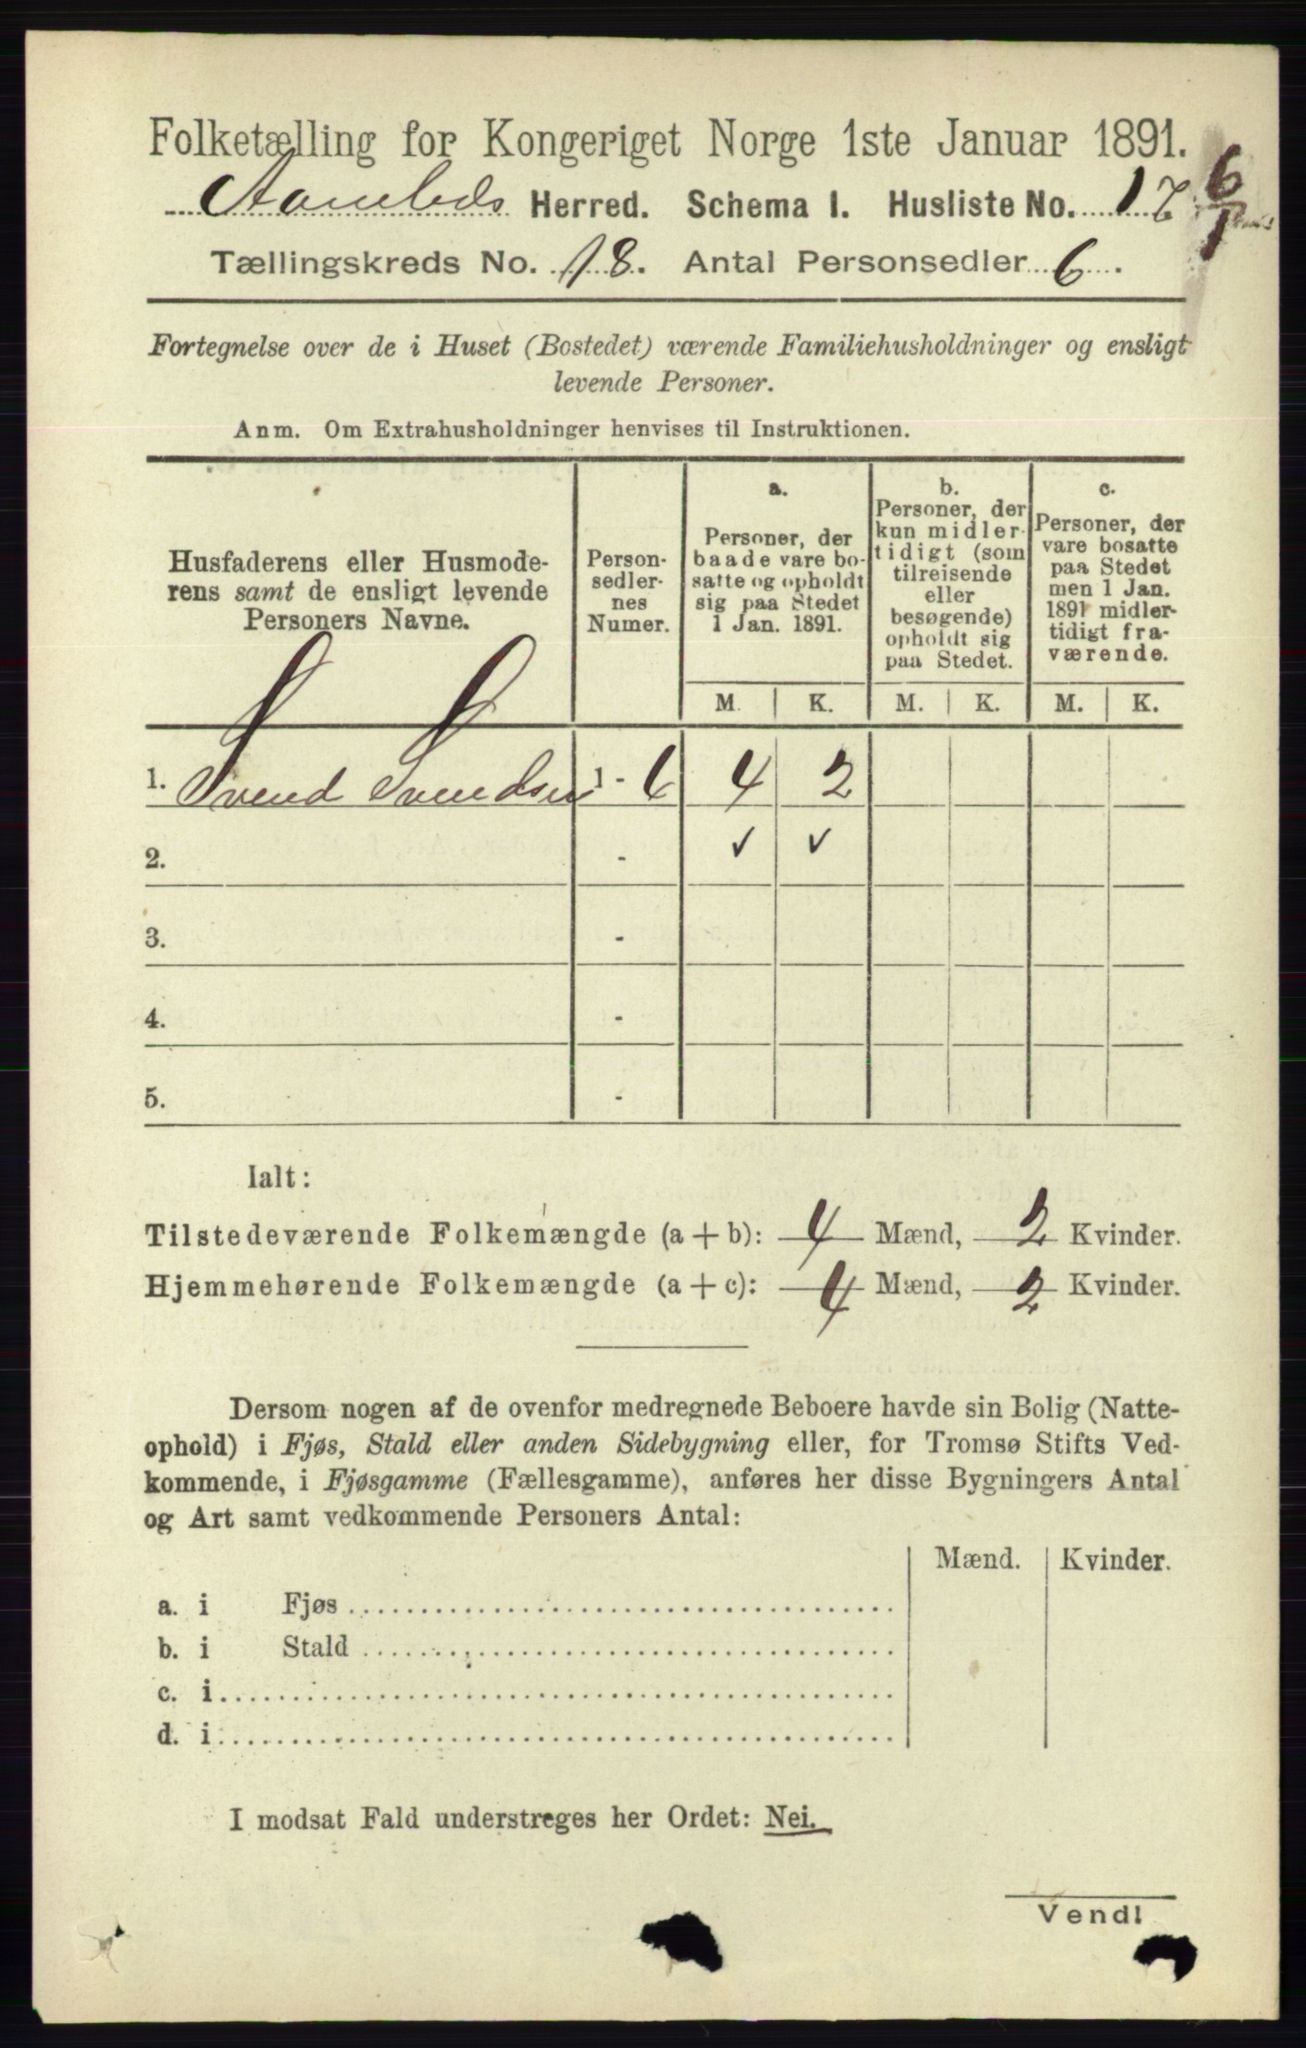 Folketælling for Kongeriget Norge 1ste Januar 1891.
Herred. Schema I. Husliste No. 17
6
1
Tællingskreds No. 18. Antal Personsedler 6.
Fortegnelse over de i Huset (Bostedet) værende Familiehusholdninger og ensligt
levende Personer.
Anm. Om Extrahusholdninger henvises til Instruktionen.
Husfaderens eller Husmode-
rens samt de ensligt levende
Personers Navne.
Person-
sedler-
nes
Numer.
a.
Personer, der
baade vare bo-
satte og opholdt
sig paa Stedet
1 Jan. 1891.
b.
Personer, der
kun midler-
tidigt (som
tilreisende
eller
besøgende)
opholdt sig
paa Stedet.
c.
Personer, der
vare bosatte
paa Stedet
men 1 Jan.
1891 midler-
tidigt fra-
værende.
M. K. M. K. M. K.
1. Svend Svendsen 1 - 6 4 2
2. - ✓ ✓
3. -
4. -
5. -
Ialt:
Tilstedeværende Folkemængde (a + b): 4 Mænd, 2 Kvinder.
Hjemmehørende Folkemængde (a + c): 4 Mænd, 2 Kvinder.
Dersom nogen af de ovenfor medregnede Beboere havde sin Bolig (Natte-
ophold) i Fjøs, Stald eller anden Sidebygning eller, for Tromsø Stifts Ved-
kommende, i Fjøsgamme (Fællesgamme), anføres her disse Bygningers Antal
og Art samt vedkommende Personers Antal:
Mænd. Kvinder.
a. i Fjøs
b. i Stald
c. i
d. i
I modsat Fald understreges her Ordet: Nei.
Vend!